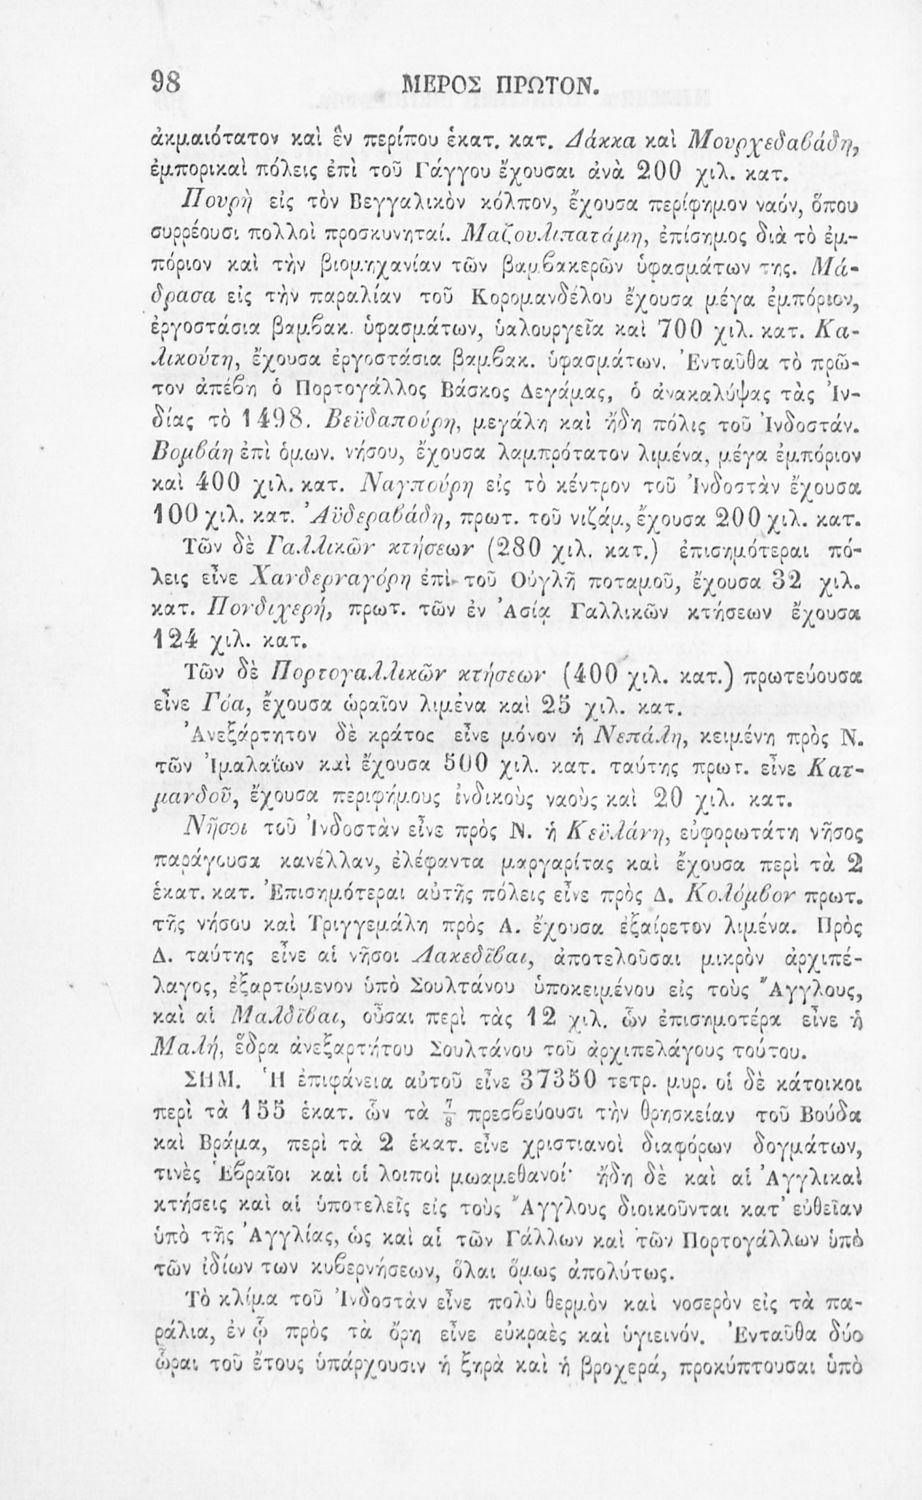 98
ΜΕΡΟΣ ΠΡΩΤΟΝ.
ἀκμαιότατον καὶ ἓν περίπου ἑκατ. κατ. Δάκκα καὶ Μουρχεδαβάδη,
ἐμπορικαὶ πόλεις ἐπὶ τοῦ Γάγγου ἔχουσαι ἀνὰ 200 χιλ. κατ.
Πουρὴ εἰς τὸν Βεγγαλικὸν κόλπον, ἔχουσα περίφημον ναόν, ὅπου
συρρέουσι πολλοὶ προσκυνηταί. Μαζουλιπατάμη, ἐπίσημος διὰ τὸ ἐμ-
πόριον καὶ τὴν βιομηχανίαν τῶν βαμβακερῶν ὑφασμάτων της. Μά-
δρασα εἰς τὴν παραλίαν τοῦ Κορομανδέλου ἔχουσα μέγα ἐμπόριον,
ἐργοστάσια βαμβακ. ὑφασμάτων, ὑαλουργεῖα καὶ 700 χιλ. κατ. Κα-
λικούτη, ἔχουσα ἐργοστάσια βαμβακ. ὑφασμάτων. Ἐνταῦθα τὸ πρῶ-
τον ἀπέβη ὁ Πορτογάλλος Βάσκος Δεγάμας, ὁ ἀνακαλύψας τὰς Ἰν-
δίας τὸ 1498. Βεϋδαπούρη, μεγάλη καὶ ἤδη πόλις τοῦ Ἰνδοστάν.
Βομβάη ἐπὶ ὁμων. νήσου, ἔχουσα λαμπρότατον λιμένα, μέγα ἐμπόριον
καὶ 400 χιλ. κατ. Ναγπούρη εἰς τὸ κέντρον τοῦ Ἰνδοστὰν ἔχουσα
100 χιλ. κατ. Ἀϋδεραβάδη, πρωτ. τοῦ νιζάμ, ἔχουσα 200 χιλ. κατ.
Τῶν δὲ Γαλλικῶν κτήσεων (280 χιλ. κατ.) ἐπισημότεραι πό-
λεις εἶνε Χανδερναγόρη ἐπὶ τοῦ Οὐγλῆ ποταμοῦ, ἔχουσα 32 χιλ.
κατ. Πονδιχερή, πρωτ. τῶν ἐν Ἀσίᾳ Γαλλικῶν κτήσεων ἔχουσα
124 χιλ. κατ.
Τῶν δὲ Πορτογαλλικῶν κτήσεων (400 χιλ. κατ.) πρωτεύουσα
εἶνε Γόα, ἔχουσα ὡραῖον λιμένα καὶ 25 χιλ. κατ.
Ἀνεξάρτητον δὲ κράτος εἶνε μόνον ἡ Νεπάλη, κειμένη πρὸς Ν.
τῶν Ἰμαλαΐων καὶ ἔχουσα 500 χιλ. κατ. ταύτης πρωτ. εἶνε Κατ-
μανδοῦ, ἔχουσα περιφήμους ἰνδικοὺς ναοὺς καὶ 20 χιλ. κατ.
Νῆσοι τοῦ Ἰνδοστὰν εἶνε πρὸς Ν. ἡ Κεϋλάνη, εὐφορωτάτη νῆσος
παράγουσα κανέλλαν, ἐλέφαντα μαργαρίτας καὶ ἔχουσα περὶ τὰ 2
ἑκατ. κατ. Ἐπισημότεραι αὐτῆς πόλεις εἶνε πρὸς Δ. Κολόμβον πρωτ.
τῆς νήσου καὶ Τριγγεμάλη πρὸς Α. ἔχουσα ἐξαίρετον λιμένα. Πρὸς
Δ. ταύτης εἶνε αἱ νῆσοι Λακεδῖβαι, ἀποτελοῦσαι μικρὸν ἀρχιπέ-
λαγος, ἐξαρτώμενον ὑπὸ Σουλτάνου ὑποκειμένου εἰς τοὺς Ἄγγλους,
καὶ αἱ Μαλδῖβαι, οὖσαι περὶ τὰς 12 χιλ. ὧν ἐπισημοτέρα εἶνε ἡ
Μαλή, ἕδρα ἀνεξαρτήτου Σουλτάνου τοῦ ἀρχιπελάγους τούτου.
ΣΗΜ. Ἡ ἐπιφάνεια αὐτοῦ εἶνε 37350 τετρ. μυρ. οἱ δὲ κάτοικοι
περὶ τὰ 155 ἑκατ. ὧν τὰ 7/8 πρεσβεύουσι τὴν θρησκείαν τοῦ Βούδα
καὶ Βράμα, περὶ τὰ 2 ἑκατ. εἶνε χριστιανοὶ διαφόρων δογμάτων,
τινὲς Ἑβραῖοι καὶ οἱ λοιποὶ μωαμεθανοί· ἤδη δὲ καὶ αἱ Ἀγγλικαὶ
κτήσεις καὶ αἱ ὑποτελεῖς εἰς τοὺς Ἄγγλους διοικοῦνται κατ' εὐθεῖαν
ὑπὸ τῆς Ἀγγλίας, ὡς καὶ αἱ τῶν Γάλλων καὶ τῶν Πορτογάλλων ὑπὸ
τῶν ἰδίων των κυβερνήσεων, ὅλαι ὅμως ἀπολύτως.
Τὸ κλίμα τοῦ Ἰνδοστὰν εἶνε πολὺ θερμὸν καὶ νοσερὸν εἰς τὰ πα-
ράλια, ἐν ᾧ πρὸς τὰ ὄρη εἶνε εὐκραὲς καὶ ὑγιεινόν. Ἐνταῦθα δύο
ὧραι τοῦ ἔτους ὑπάρχουσιν ἡ ξηρὰ καὶ ἡ βροχερά, προκύπτουσαι ὑπὸ